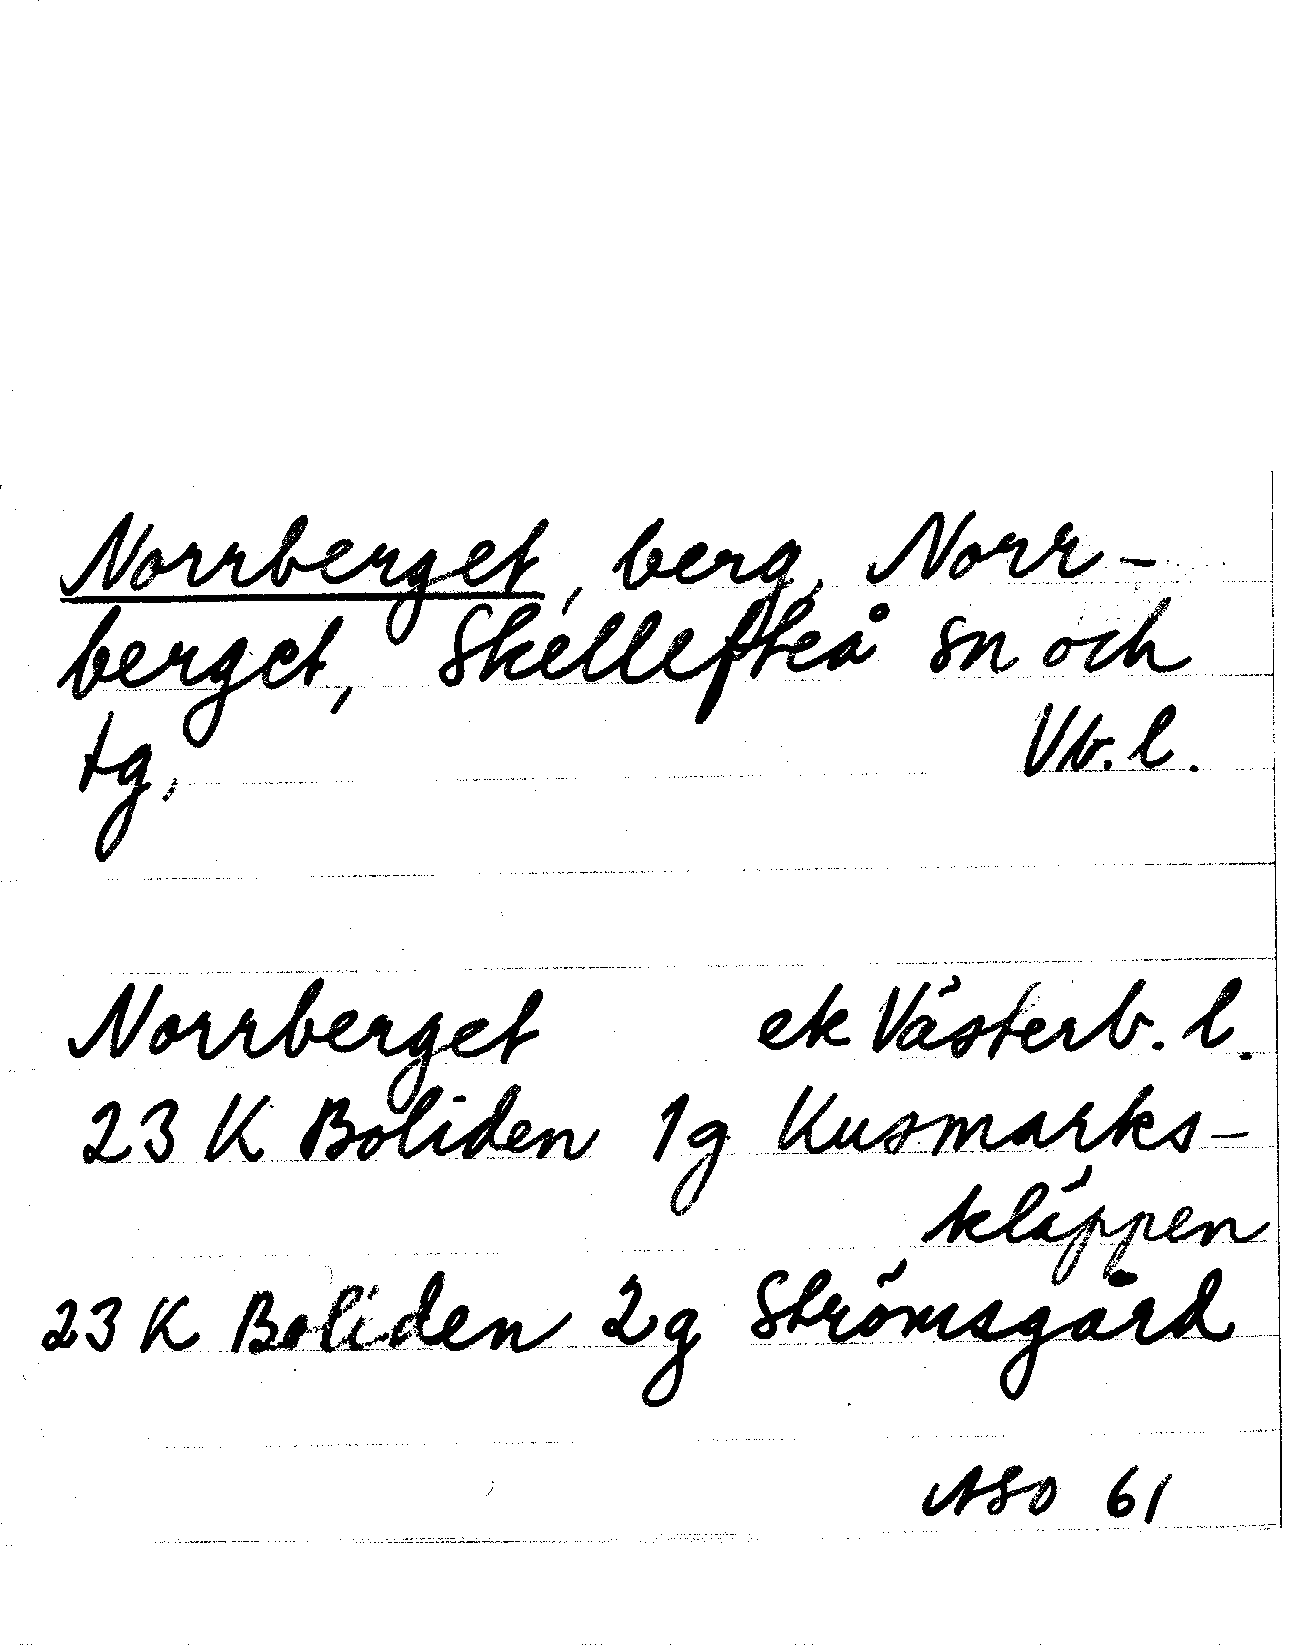 Norrberget, berg, Norr-
berget, Skellefteå sn och
tg, Vb.l.
Norrberget ek Västerb.l.
23 K Boliden 1g Kusmarks-
kläppen
23 K Boliden 2g Strömsgård
ASO 61